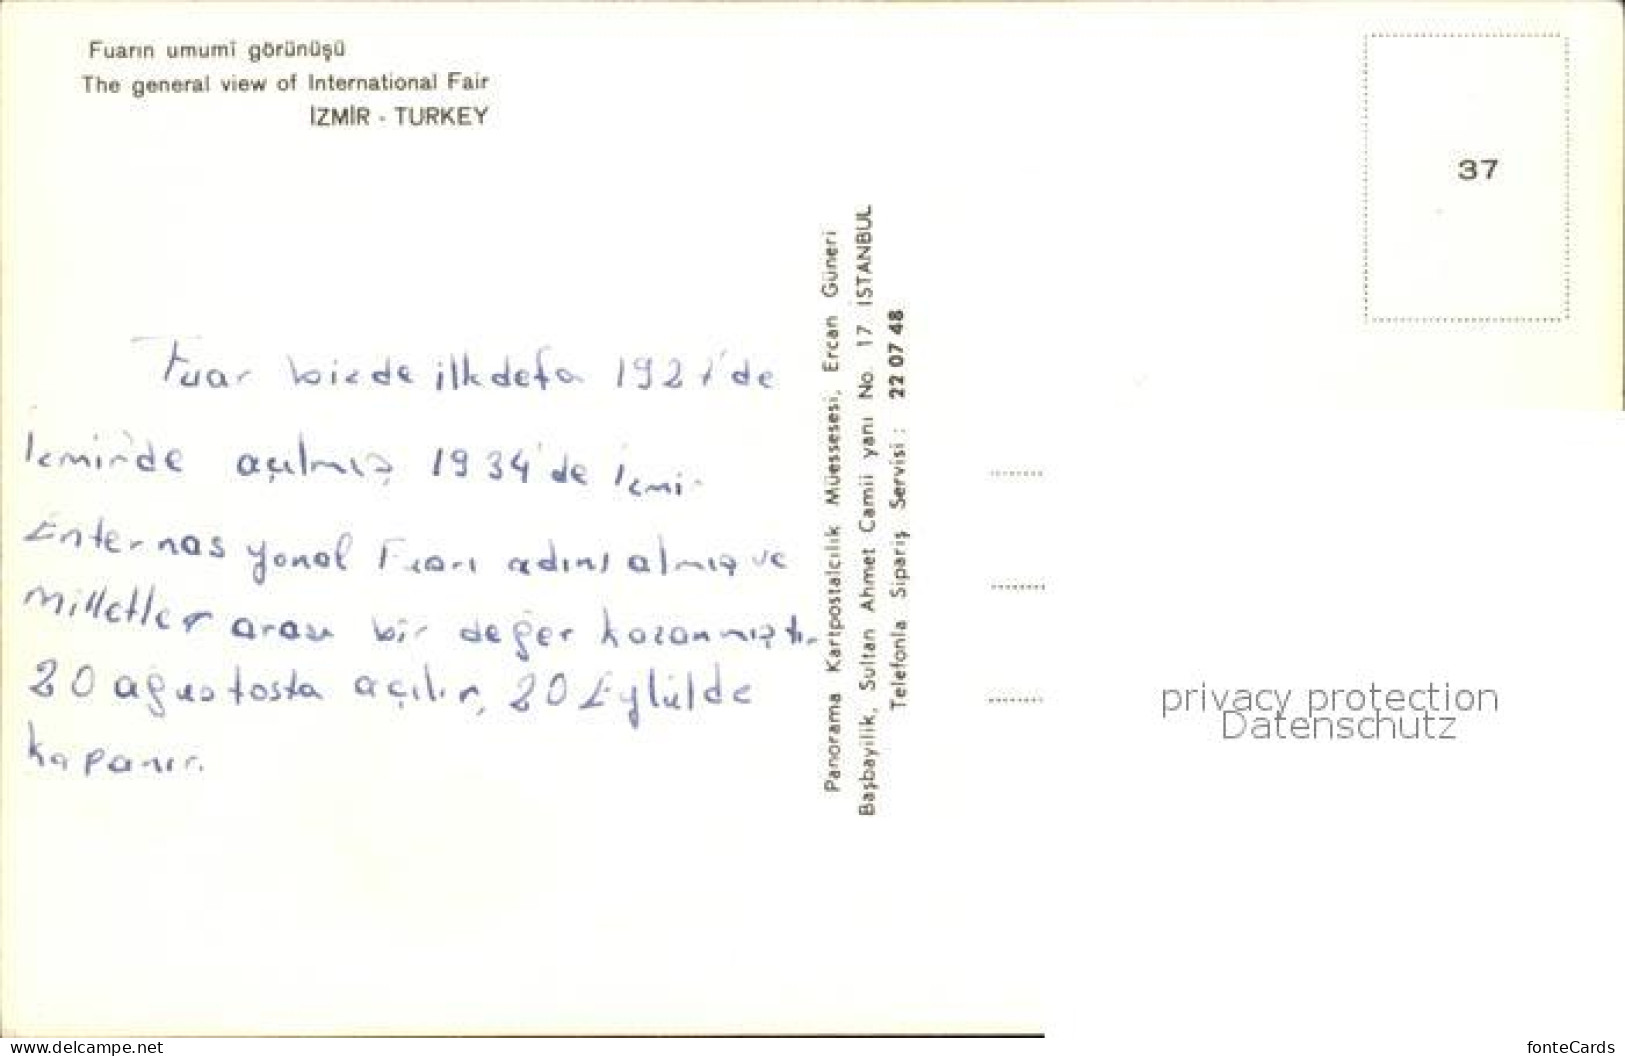 Fuarın umumî görünüşü
The general view of International Fair
İZMİR - TURKEY
37
Fuar bizde ilk defa 1927'de
İzmir'de açılmış 1934'de İzmir
Enternasyonal Fuarı adını almış ve
Milletler arası bir değer kazanmıştır.
20 ağustosta açılır, 20 Eylülde
kapanır.
Panorama Kartpostalcılık Müessesesi, Ercan Güneri
Başbayilik, Sultan Ahmet Camii yanı No. 17 İSTANBUL
Telefonla Sipariş Servisi : 22 07 48
privacy protection
Datenschutz
www.delcampe.net
fonteCards